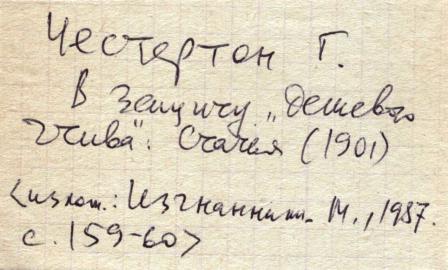 Честертон Г.
В защиту „дешевого
чтива“. Статья (1901)
<излож.: Изгнанники. М., 1987.
с. 159-60>